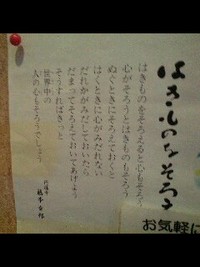 はきものをそろえる
はきものをそろえると心もそろう
心がそろうとはきものもそろう
ぬぐときにそろえておくと
はくときに心がみだれない
だれかがみだしておいたら
だまってそろえておいてあげよう
そうすればきっと
世界中の
人の心もそろうでしょう
お気軽に